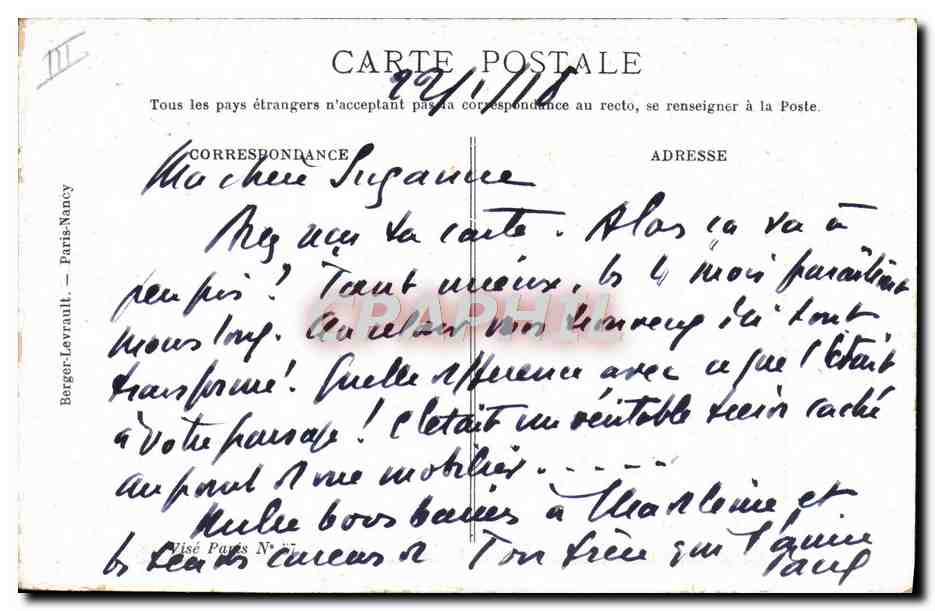 III
CARTE POSTALE
22/1/18
Tous les pays étrangers n'acceptant pas la correspondance au recto, se renseigner à la Poste.
CORRESPONDANCE
ADRESSE
Berger-Levrault. — Paris-Nancy
Ma chère Suzanne
Bien reçu ta carte. Alors ça va à
peu près? Tant mieux. Les 4 mois paraîtront
moins long. Au retour vous trouverez ici tout
transformé! Quelle différence avec ce que c'était
à votre passage! C'était un véritable
au point de vue mobilier......
Mille bons baisers à Madeleine et
les tendres caresses de Ton frère qui t'aime
Visé Paris N°
CPAPHIL